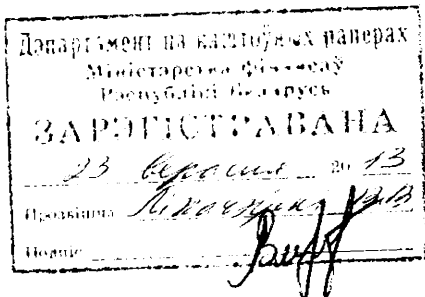 Дэпартамент па каштоўных паперах
Міністэрства фінансаў
Рэспублікі Беларусь
ЗАРЭГІСТРАВАНА
23 верасня 2013
Прозвішча
Подпіс